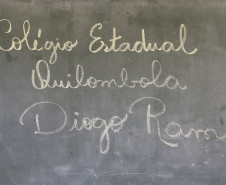 Colégio Estadual
Quilombola
Diogo Ram